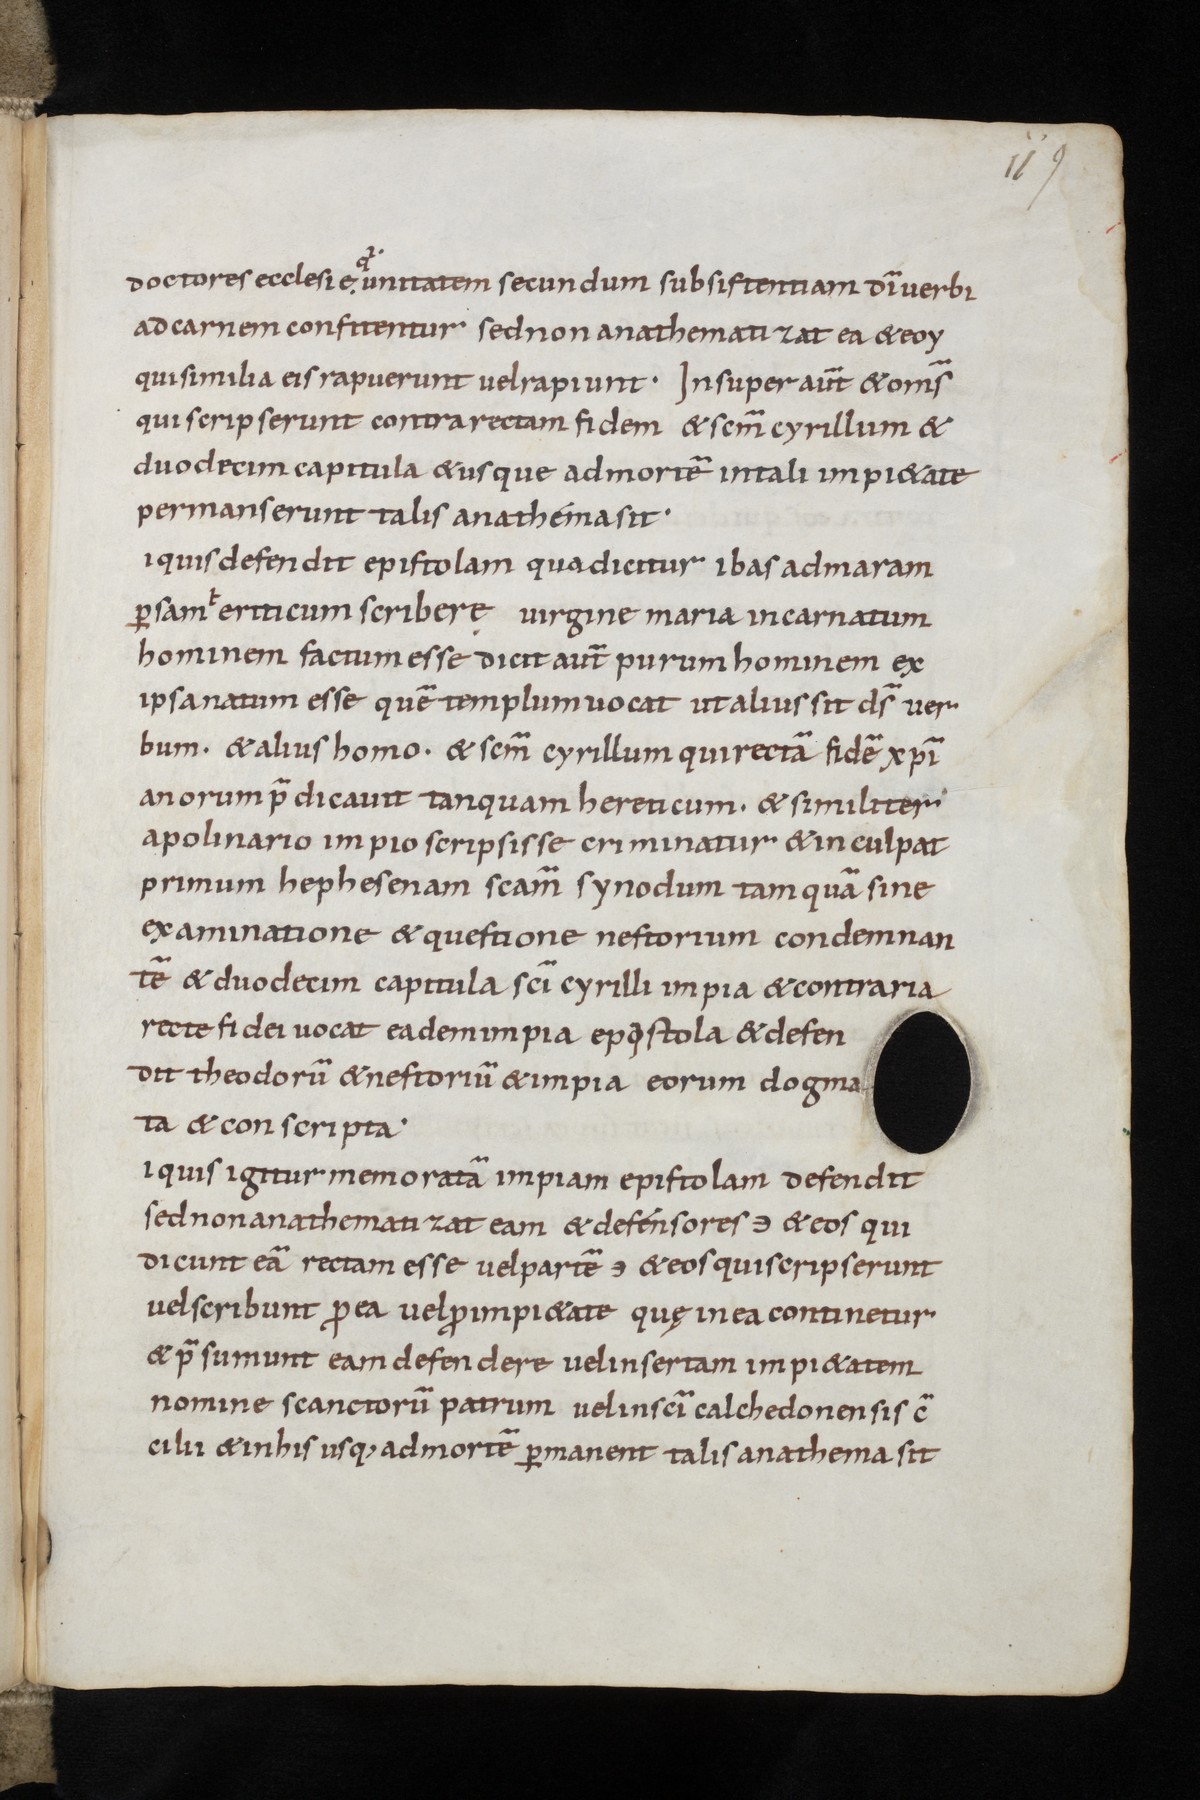 119
doctores ecclesię unitatem secundum subsistentiam dī verbi
ad carnem confitentur sed non anathematizat ea & eoy
qui similia eis rapuerunt vel rapiunt · Insuper aut̄ & om̄s
qui scripserunt contra rectam fidem & scm̄ cyrillum &
duodecim capitula & usque ad mortē in tali impi&ate
permanserunt talis anathéma sit ·
i quis defendit epistolam qua dicitur ibas ad maram
ꝑsam ertticum scriberę virgine maria incarnatum
hominem factum esse dicit aut̄ purum hominem ex
ipsa natum esse quē templum uocat ut alius sit ds̄ uer
bum · & alius homo · & scm̄ cyrillum qui rectā fidē xp̄i
anorum p̄dicauit tanquam hereticum · & similiter
apolinario impio scripsisse criminatur & inculpat
primum hephesenam scam̄ synodum tam quā sine
examinatione & questione nestorium condemnan
tē & duodecim capitula scī cyrilli impia & contraria
recte fidei uocat eadem impia epistola & defen
dit theodorū & nestoriū & impia eorum dogma
ta & conscripta ·
i quis igitur memoratā impiam epistolam defendit
sed non anathematizat eam & defénsores ɔ & eos qui
dicunt eā rectam esse uel partē ɔ & eos qui scripserunt
uel scribunt ꝓ ea uel ꝓ impi&ate quę in ea continetur
& p̄sumunt eam defendere uel insertam impi&atem
nomine scanctorū patrum uel in scī calchedonensis c̄
cilii & in his usq; ad mortē ꝑmanent talis anathema sit